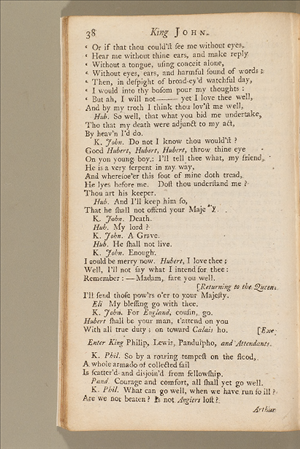 38 King JOHN.
‘ Or if that thou could'ſt ſee me without eyes,
‘ Hear me without thine ears, and make reply
‘ Without a tongue, uſing conceit alone,
‘ Without eyes, ears, and harmful ſound of words:
‘ Then, in deſpight of brood-ey'd watchful day,
‘ I would into thy boſom pour my thoughts:
‘ But ah, I will not —— yet I love thee well,
And by my troth I think thou lov'ſt me well.
Hub. So well, that what you bid me undertake,
Tho that my death were adjunct to my act,
By heav'n I'd do.
K. John. Do not I know thou would'ſt?
Good Hubert, Hubert, Hubert, throw thine eye
On you young boy: I'll tell thee what, my friend,
He is a very ſerpent in my way,
And whereſoe'er this foot of mine doth tread,
He lyes before me. Doſt thou underſtand me?
Thou art his keeper.
Hub. And I'll keep him ſo,
That he ſhall not offend your Majeſty.
K. John. Death.
Hub. My lord?
K. John. A Grave.
Hub. He ſhall not live.
K. John. Enough.
I could be merry now. Hubert, I love thee;
Well, I'll not ſay what I intend for thee:
Remember: — Madam, fare you well.
[Returning to the Queen.
I'll ſend thoſe pow'rs o'er to your Majeſty.
Eli My bleſſing go with thee.
K. John. For England, couſin, go.
Hubert ſhall be your man, t'attend on you
With all true duty: on toward Calais ho. [Exe.
Enter King Philip, Lewis, Pandulpho, and Attendants.
K. Phil. So by a roaring tempeſt on the flood,
A whole armado of collected ſail
Is ſcatter'd and disjoin'd from fellowſhip.
Pand Courage and comfort, all ſhall yet go well.
K. Phil. What can go well, when we have run ſo ill?
Are we not beaten? Is not Angiers loſt?
Arthur